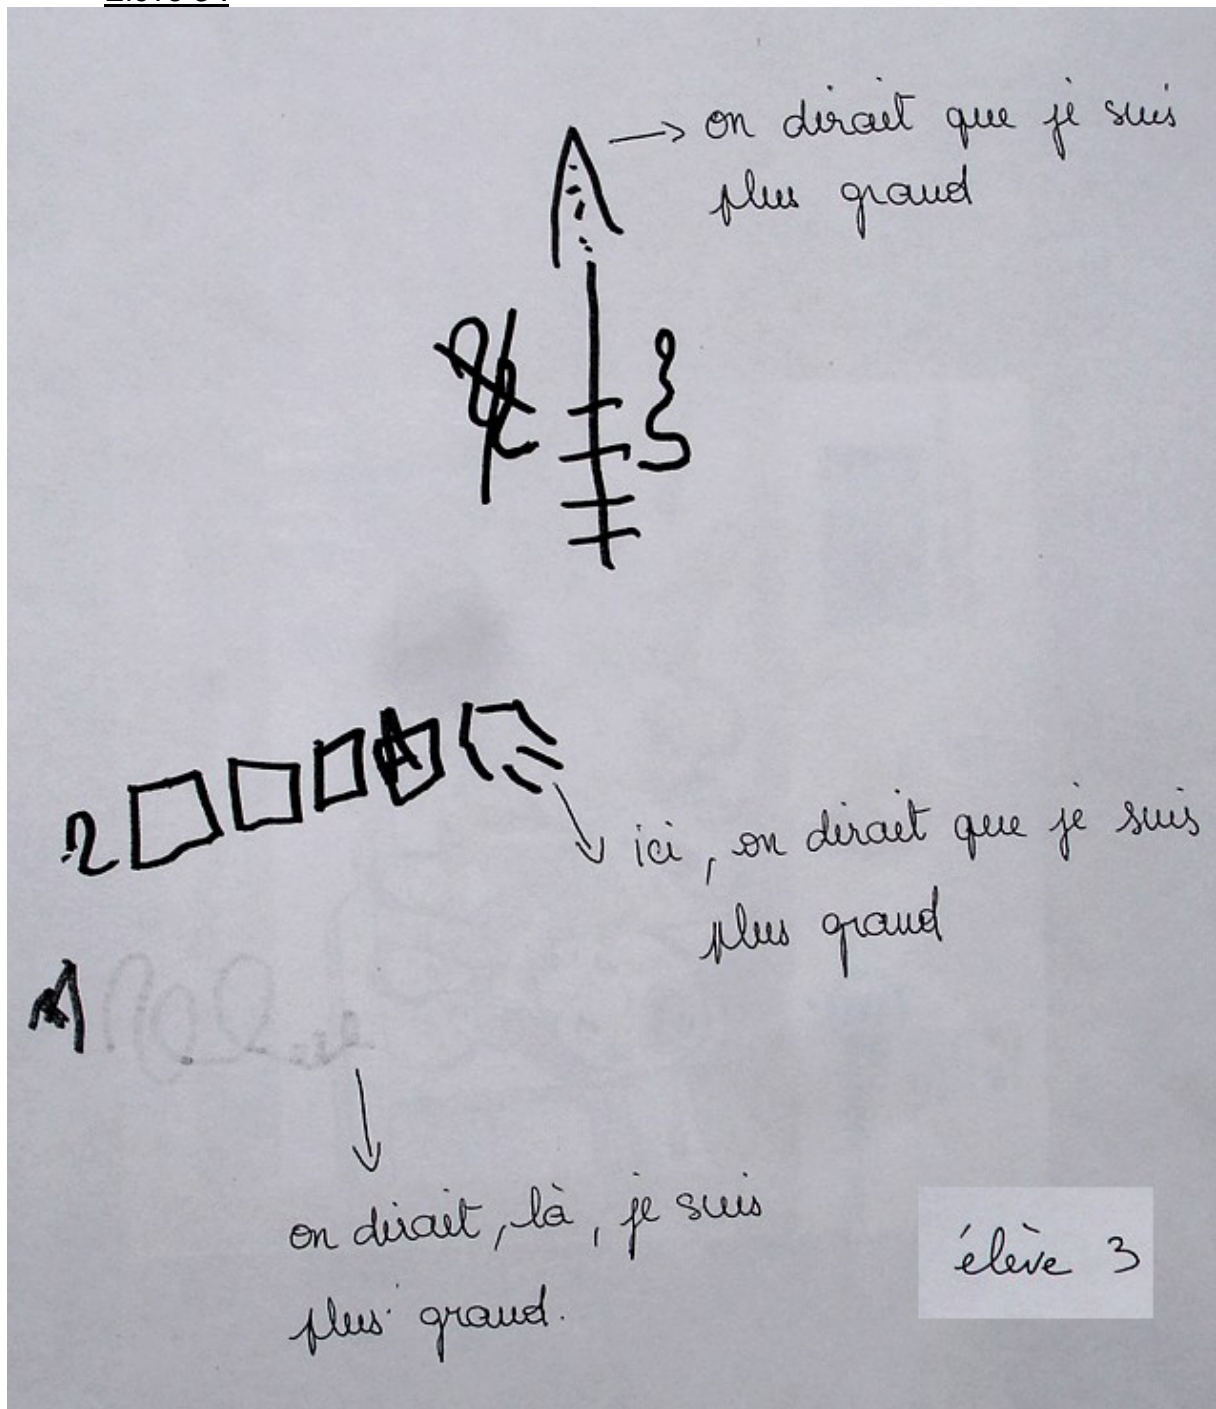 on dirait que je suis
plus grand
3
2
ici, on dirait que je suis
plus grand
1
on dirait, là, je suis
plus grand.
élève 3